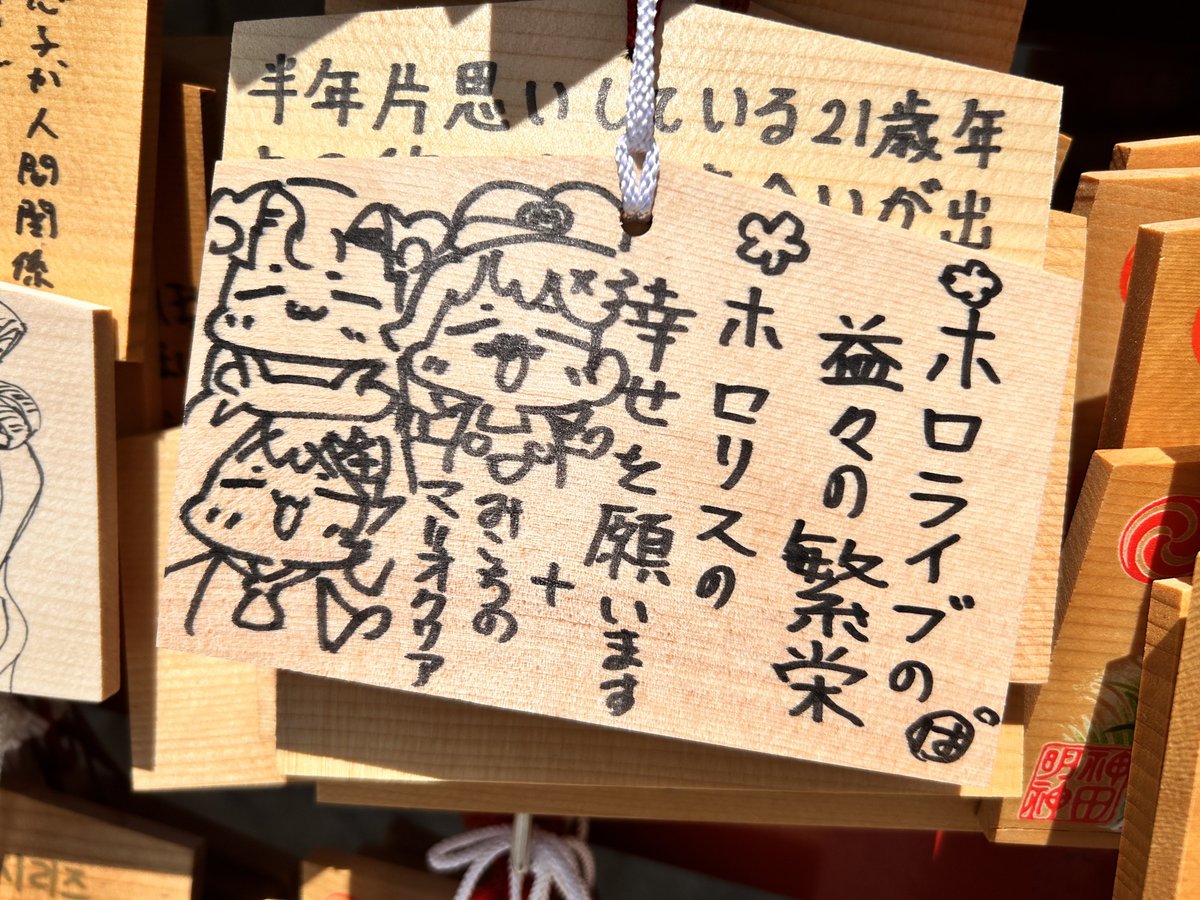 ホロライブの
益々の繁栄
ホロリスの
幸せを願います
+
みこちの
マリオクリア
ぱ
半年片思いしている21歳年
いが出
人間関係
神田
明神
시리즈